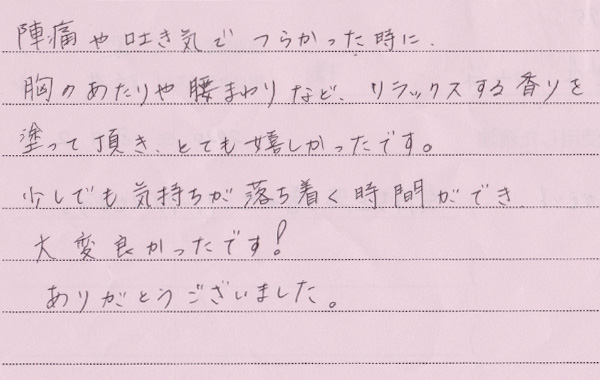 陣痛や吐き気でつらかった時に、
胸のあたりや腰まわりなど、リラックスする香りを
塗って頂き、とても嬉しかったです。
少しでも気持ちが落ち着く時間ができ、
大変良かったです!
ありがとうございました。